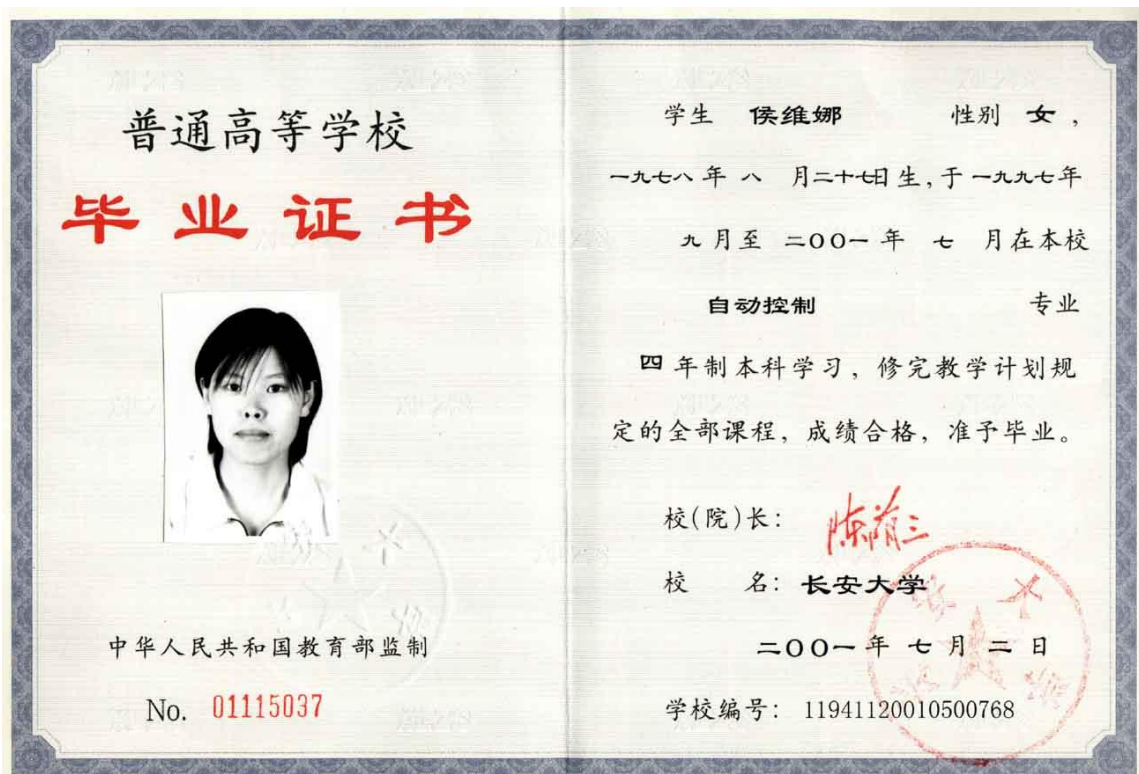 普通高等学校
毕业证书
中华人民共和国教育部监制
No. 01115037
学生 侯维娜 性别 女，
一九七八年 八 月二十七日生，于一九九七年
九月至 二〇〇一年 七 月在本校
自动控制 专业
四年制本科学习，修完教学计划规
定的全部课程，成绩合格，准予毕业。
校(院)长：
校 名：长安大学
二〇〇一年 七 月 二 日
学校编号：11941120010500768